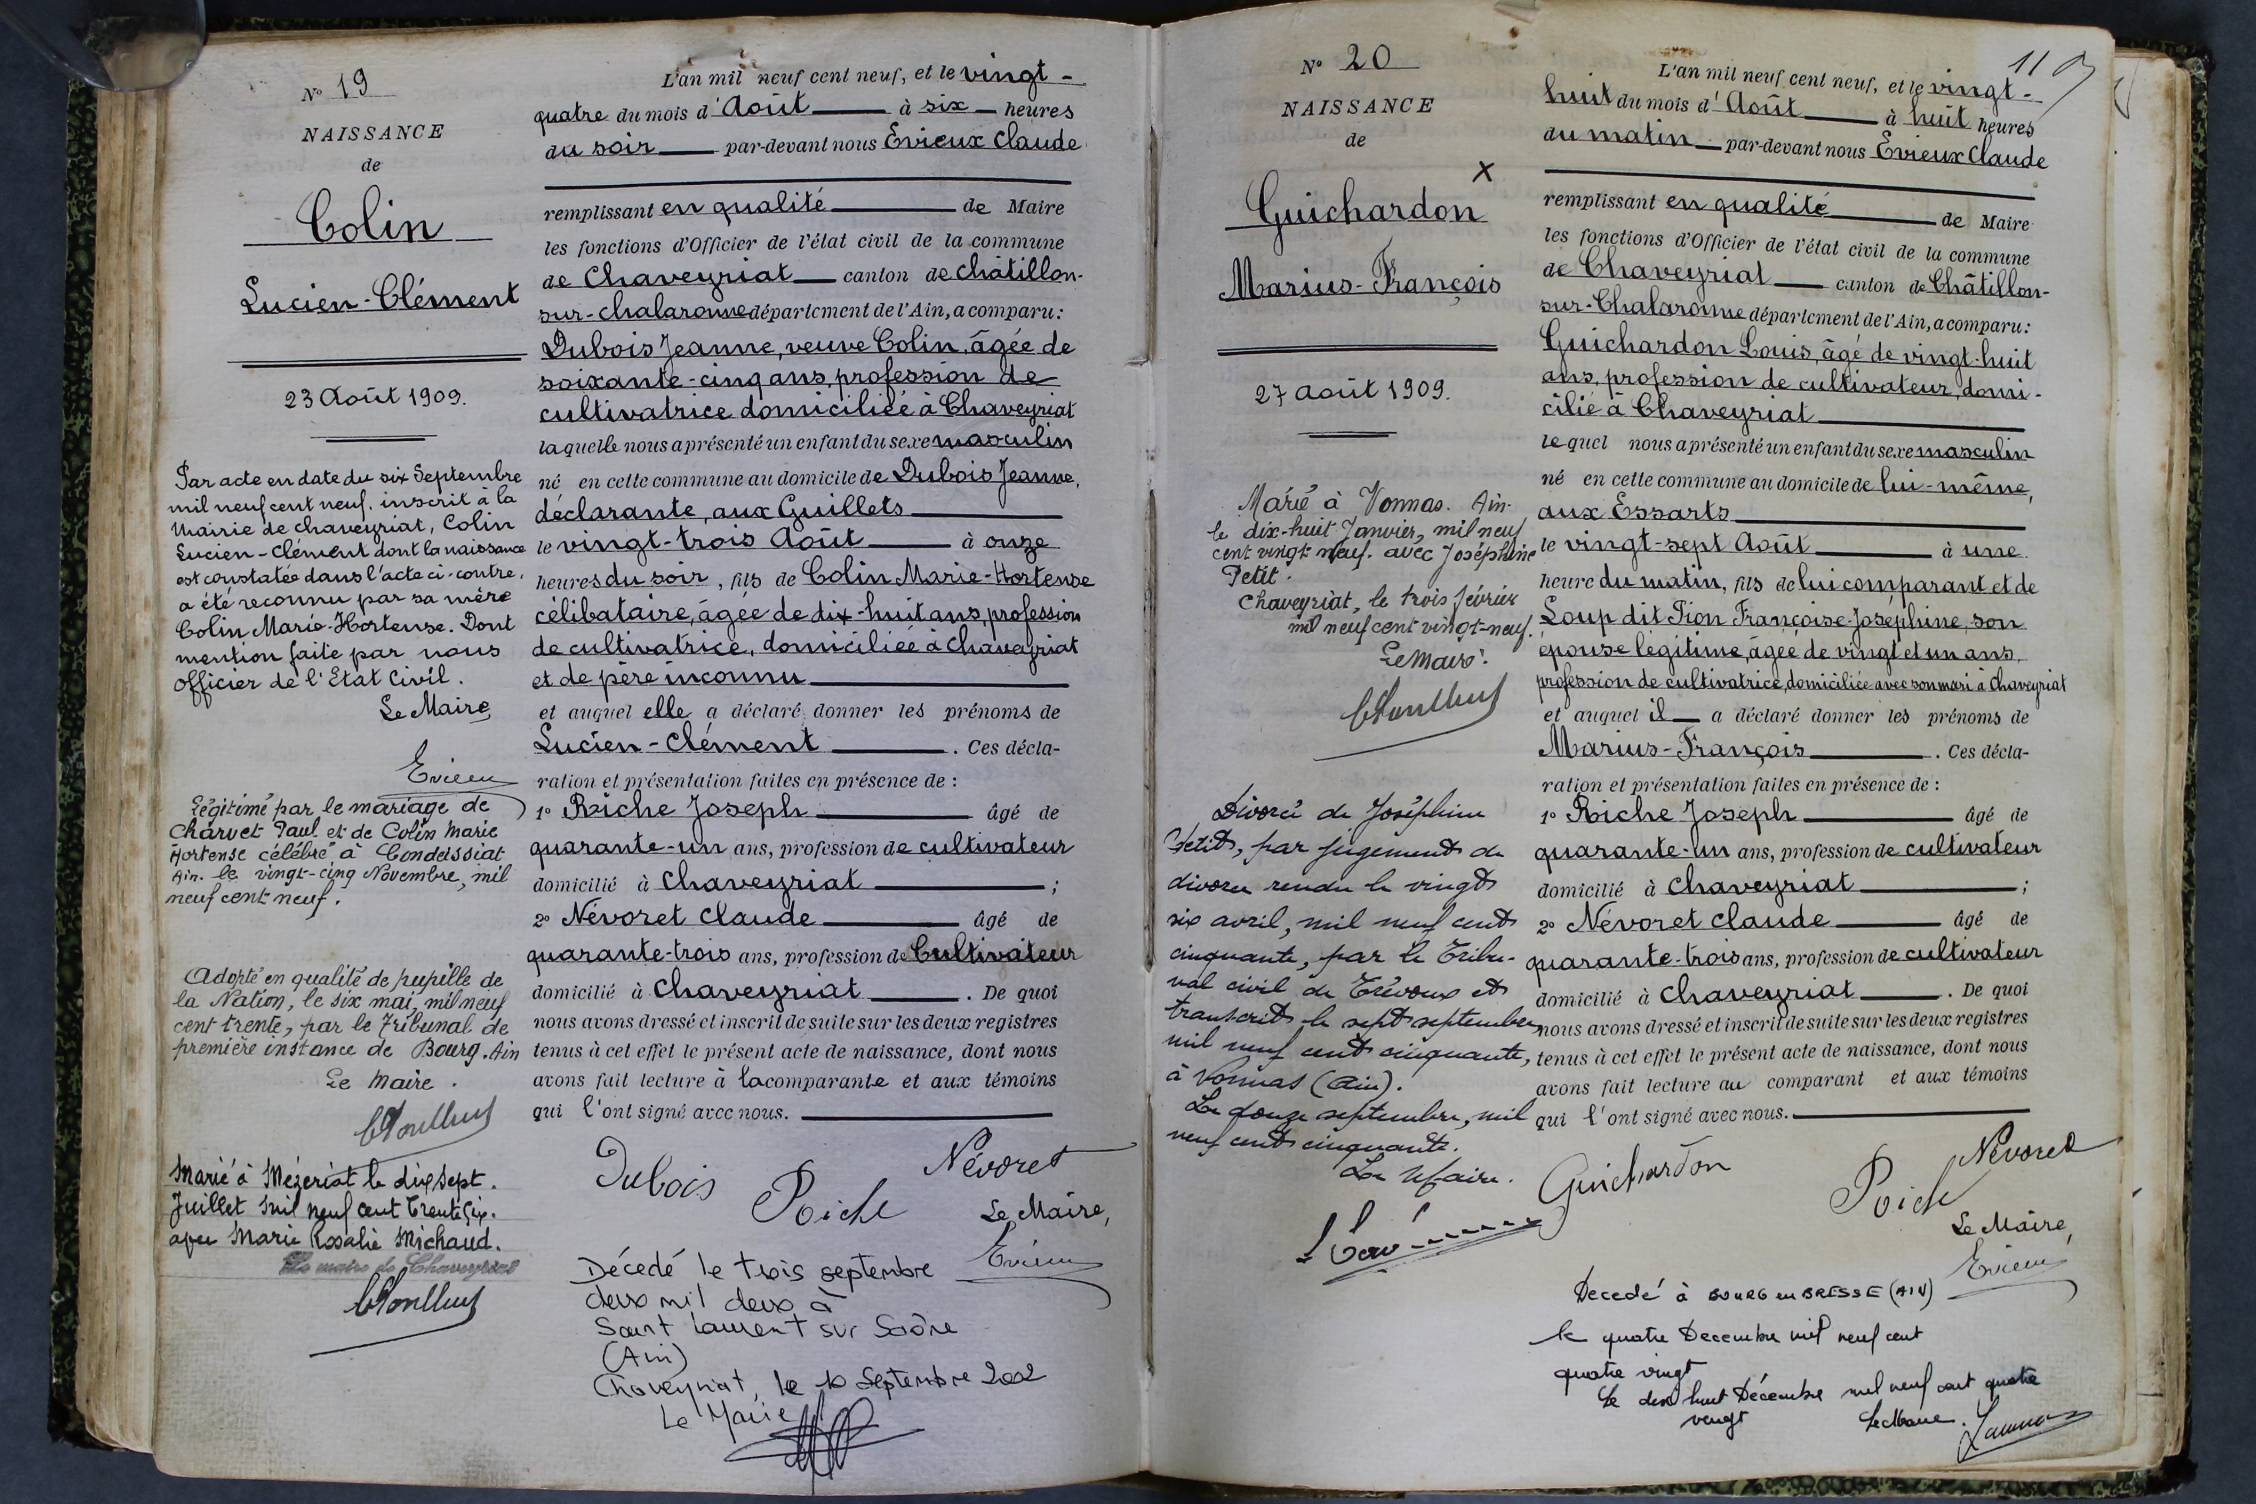 N° 19
NAISSANCE
de
Colin
Lucien-Clément
23 Août 1909.
Par acte en date du six Septembre
mil neuf cent neuf. inscrit à la
Mairie de Chaveyriat, Colin
Lucien-Clément dont la naissance
est constatée dans l'acte ci-contre,
a été reconnu par sa mère
Colin Marie-Hortense. Dont
mention faite par nous
officier de l'Etat Civil.
Le Maire
Evieux
Légitimé par le mariage de
Charvet Paul et de Colin Marie
Hortense célébré à Condeissiat
Ain. le vingt-cinq Novembre, mil
neuf cent neuf.
Adopté en qualité de pupille de
la Nation, le six mai, mil neuf
cent trente, par le Tribunal de
première instance de Bourg. Ain
Le Maire.
Marié à Mézériat le dix sept.
Juillet mil neuf cent trente six.
avec Marie Rosalie Michaud.
Le maire de Chaveyriat
L'an mil neuf cent neuf, et le vingt-
quatre du mois d'Août à six heures
du soir par-devant nous Evieux Claude
remplissant en qualité de Maire
les fonctions d'Officier de l'état civil de la commune
de Chaveyriat canton de Châtillon-
sur-Chalaronne département de l'Ain, a comparu:
Dubois Jeanne, veuve Colin, âgée de
soixante-cinq ans, profession de
cultivatrice domiciliée à Chaveyriat
laquelle nous a présenté un enfant du sexe masculin
né en cette commune au domicile de Dubois Jeanne,
déclarante, aux Guillets
le vingt-trois Août à onze
heures du soir, fils de Colin Marie-Hortense
célibataire, âgée de dix-huit ans, profession
de cultivatrice, domiciliée à Chaveyriat
et de père inconnu
et auquel elle a déclaré donner les prénoms de
Lucien-Clément. Ces décla-
ration et présentation faites en présence de :
1° Riche Joseph âgé de
quarante-un ans, profession de cultivateur
domicilié à Chaveyriat ;
2° Névoret Claude âgé de
quarante-trois ans, profession de Cultivateur
domicilié à Chaveyriat. De quoi
nous avons dressé et inscrit de suite sur les deux registres
tenus à cet effet le présent acte de naissance, dont nous
avons fait lecture à la comparante et aux témoins
qui l'ont signé avec nous.
Dubois Riche Névoret
Le Maire,
Evieux
Décédé le trois septembre
deux mil deux à
Saint Laurent sur Saône
(Ain)
Chaveyriat, le 10 Septembre 2002
Le Maire
N° 20
NAISSANCE
de
X
Guichardon
Marius-François
27 Août 1909.
Marié à Vonnas. Ain.
le dix-huit Janvier, mil neuf
cent vingt neuf. avec Joséphine
Petit.
Chaveyriat, le trois février
mil neuf cent vingt-neuf.
Le Maire.
Divorcé de Joséphine
Petit, par jugement de
divorce rendu le vingt
six avril, mil neuf cent
cinquante, par le Tribu-
nal civil de Trévoux et
transcrit le sept septembre
mil neuf cent cinquante,
à Vonnas (Ain).
Le douze septembre, mil
neuf cent cinquante.
Le Maire.
11
L'an mil neuf cent neuf, et le vingt-
huit du mois d'Août à huit heures
du matin par-devant nous Evieux Claude
remplissant en qualité de Maire
les fonctions d'Officier de l'état civil de la commune
de Chaveyriat canton de Châtillon-
sur-Chalaronne département de l'Ain, a comparu:
Guichardon Louis, âgé de vingt-huit
ans, profession de cultivateur, domi-
cilié à Chaveyriat
lequel nous a présenté un enfant du sexe masculin
né en cette commune au domicile de lui-même,
aux Essarts
le vingt-sept Août à une
heure du matin, fils de lui comparant et de
Loup dit Pion Françoise-Joséphine, son
épouse légitime, âgée de vingt et un ans,
profession de cultivatrice, domiciliée avec son mari à Chaveyriat
et auquel il a déclaré donner les prénoms de
Marius-François. Ces décla-
ration et présentation faites en présence de :
1° Riche Joseph âgé de
quarante-un ans, profession de cultivateur
domicilié à Chaveyriat ;
2° Névoret Claude âgé de
quarante-trois ans, profession de cultivateur
domicilié à Chaveyriat. De quoi
nous avons dressé et inscrit de suite sur les deux registres
tenus à cet effet le présent acte de naissance, dont nous
avons fait lecture au comparant et aux témoins
qui l'ont signé avec nous.
Guichardon Riche Névoret
Le Maire,
Evieux
Decedé à BOURG en BRESSE (AIN)
le quatre Decembre mil neuf cent
quatre vingt
Le dix huit Décembre mil neuf cent quatre
vingt Le Maire.